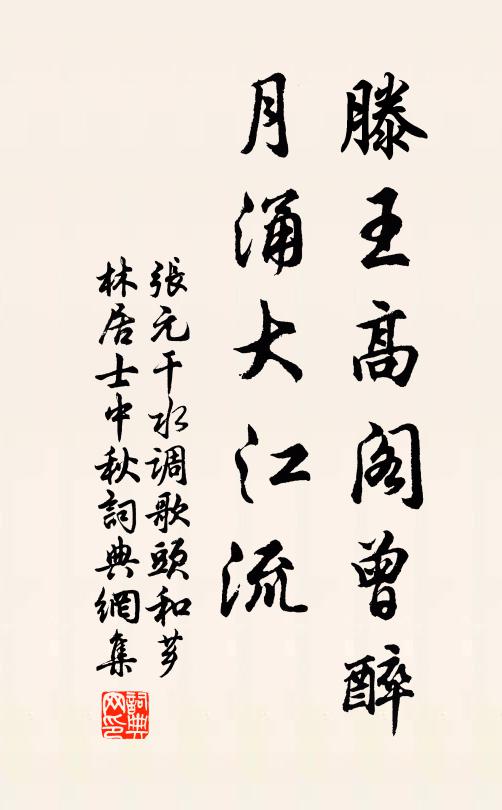 滕王高閣曾醉
月涌大江流
張元干水調歌頭和芗
林居士中秋詞典網集
詞典网印